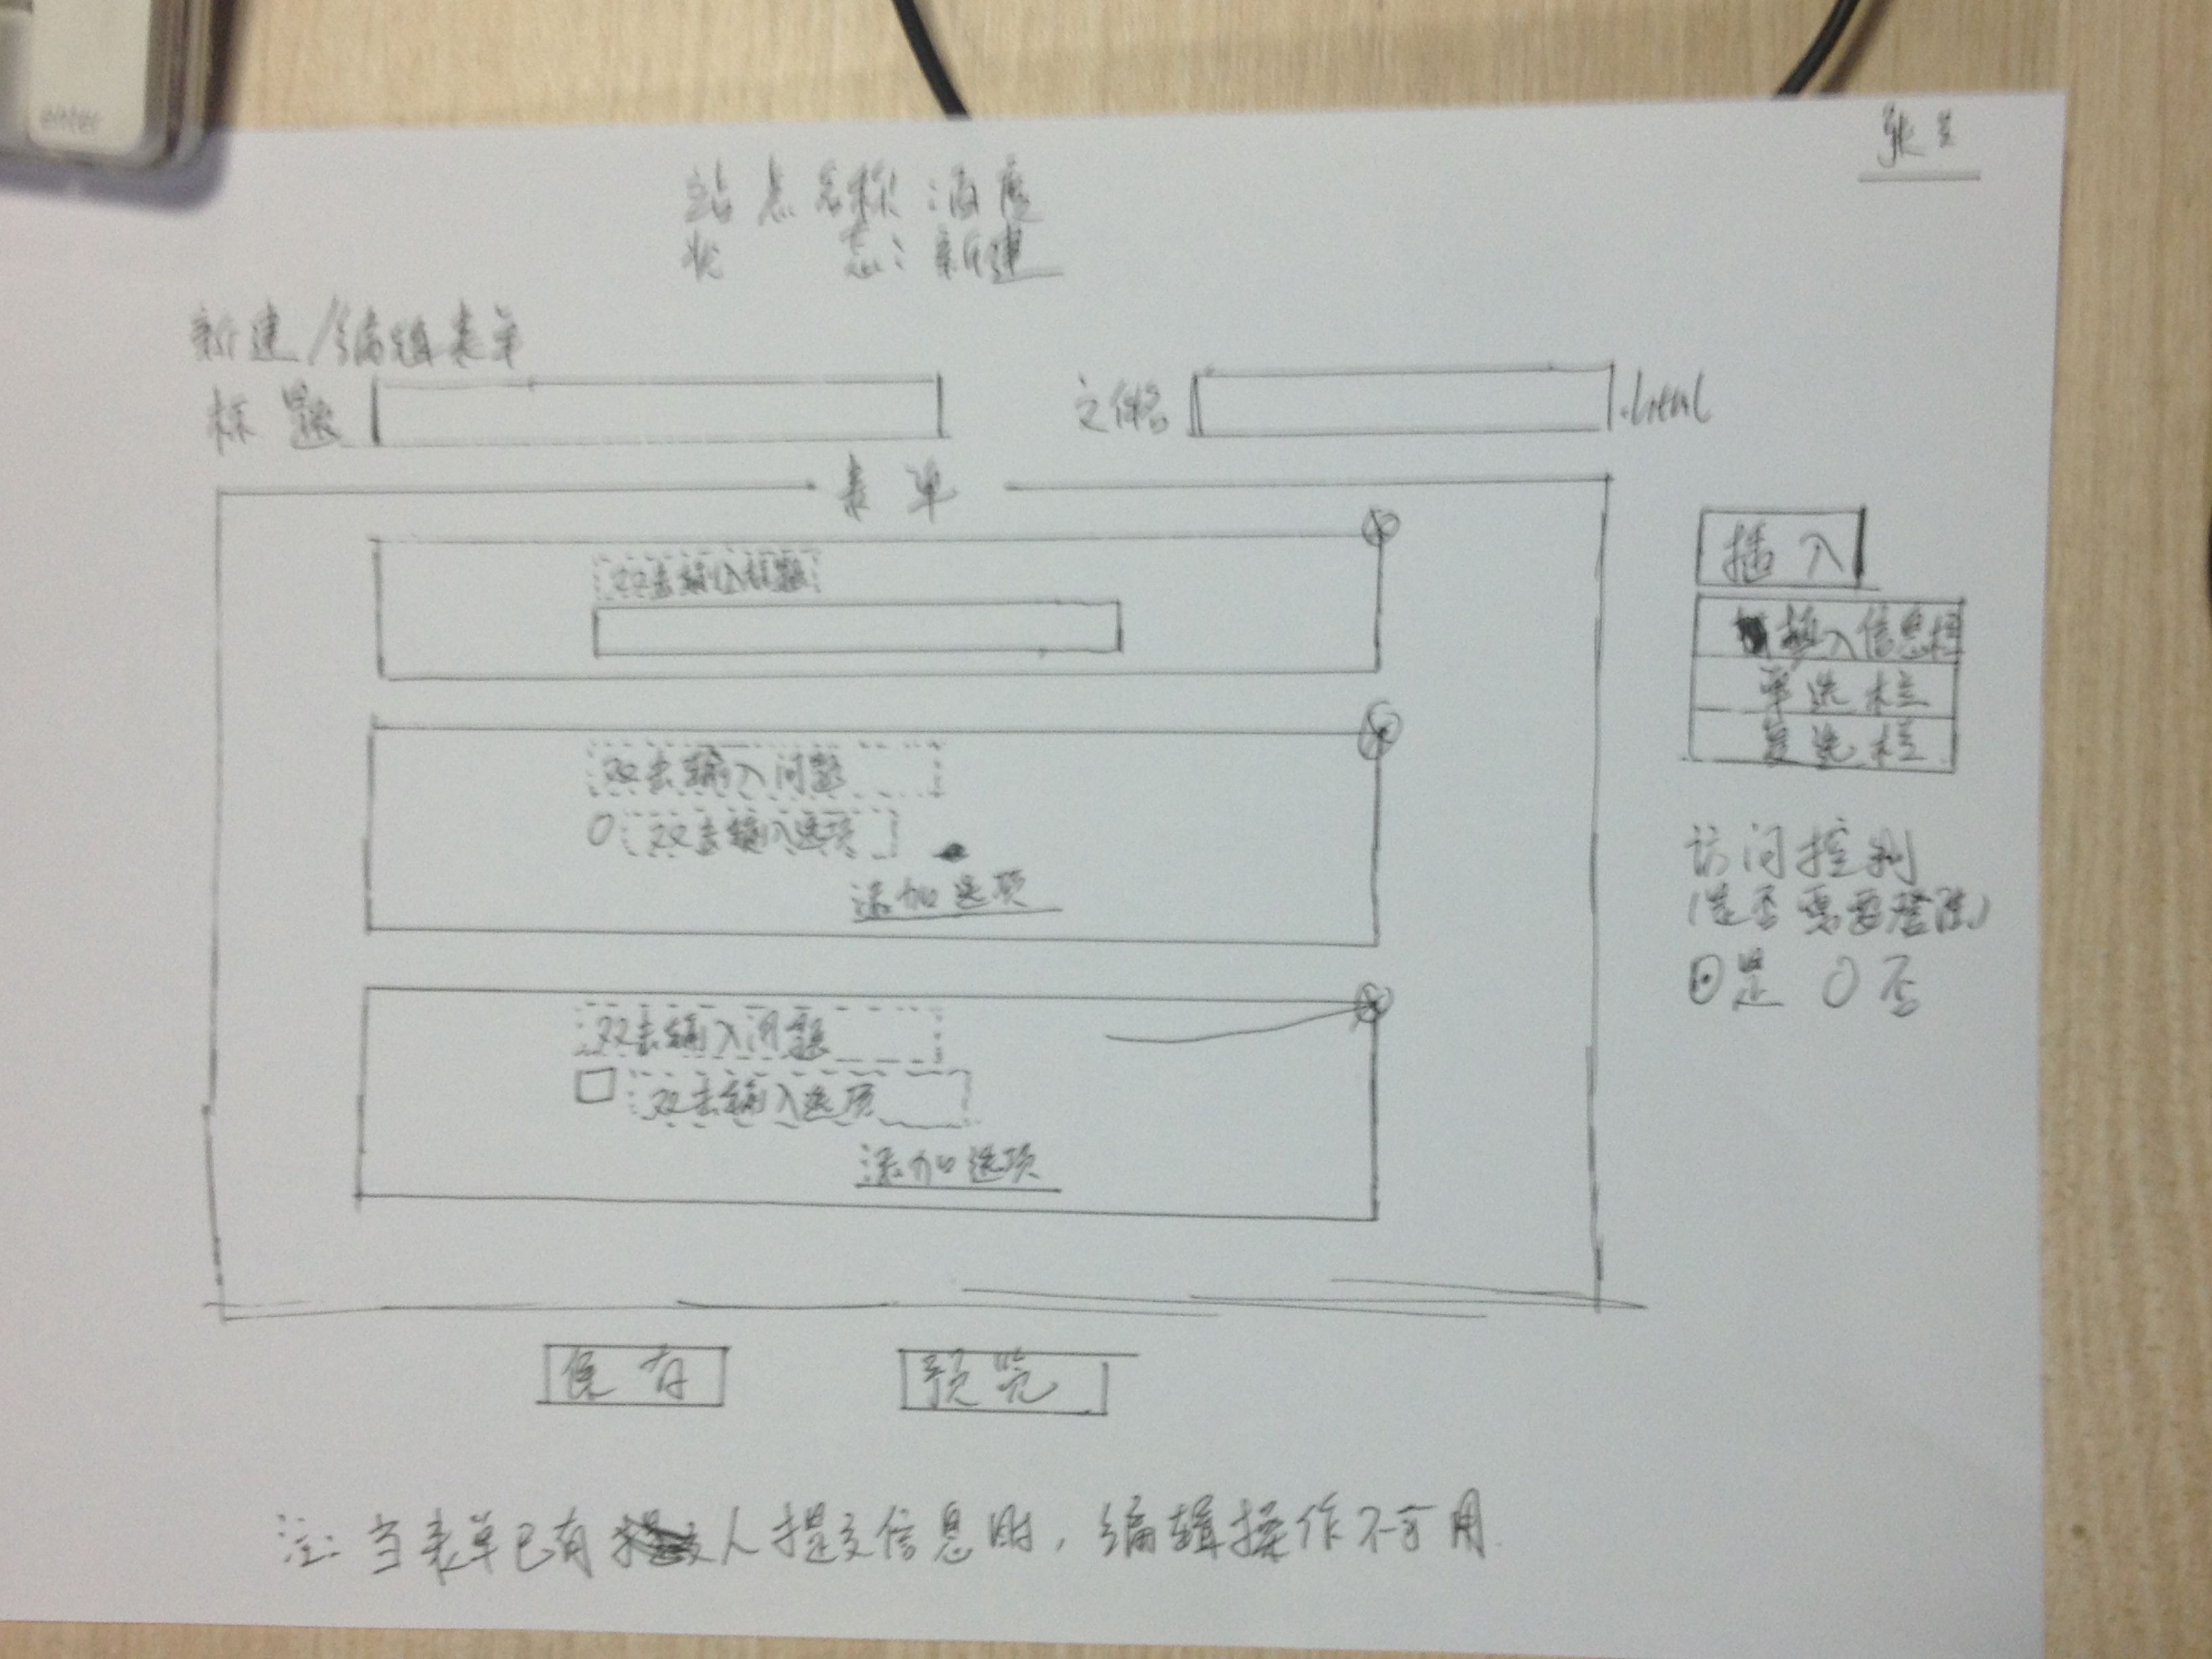 enter
张三
站点名称:百度
状 态:新建
新建/编辑表单
标 题
文件名
.html
表 单
双击输入标题
双击输入问题
双击输入选项
添加选项
双击输入问题
双击输入选项
添加选项
插 入
插入信息栏
单选栏
复选栏
访问控制
(是否需要登陆)
是 否
保 存
预览
注:当表单已有人提交信息时,编辑操作不可用.